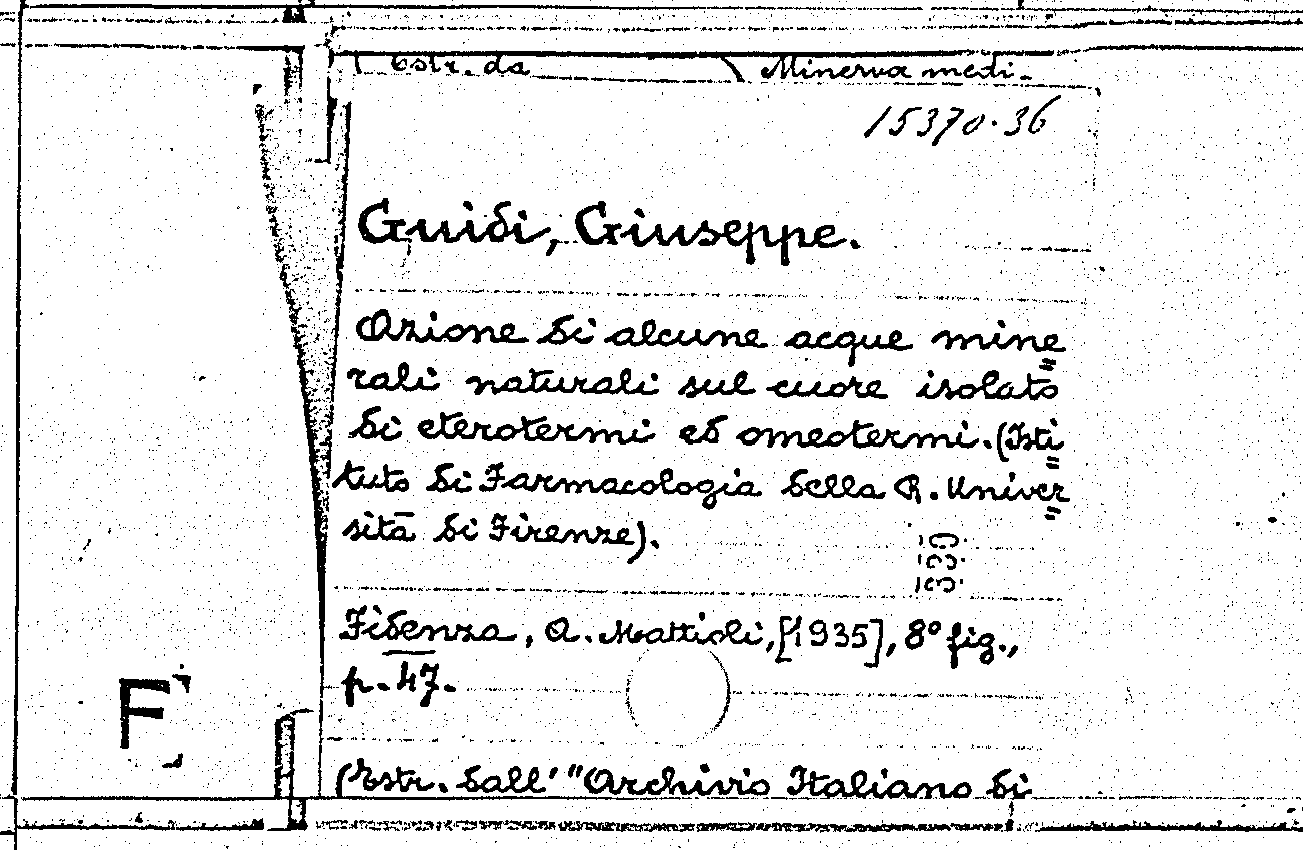 Estr. da Minerva medi-
15370.36
Guidi, Giuseppe.
Azione di alcune acque mine
rali naturali sul cuore isolato
di eterotermi ed omeotermi. (Isti
tuto di Farmacologia della R. Univer
sità di Firenze).
Fidenza, A. Mattioli, [1935], 8° fig.,
p. 47.
F
(Estr. dall' "Archivio Italiano di